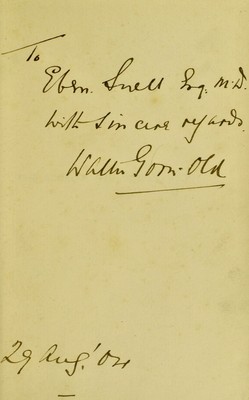 To
Eben. Snell Esq. M.D.
with sincere regards.
Walter Gorn-Old
29 Aug! 04